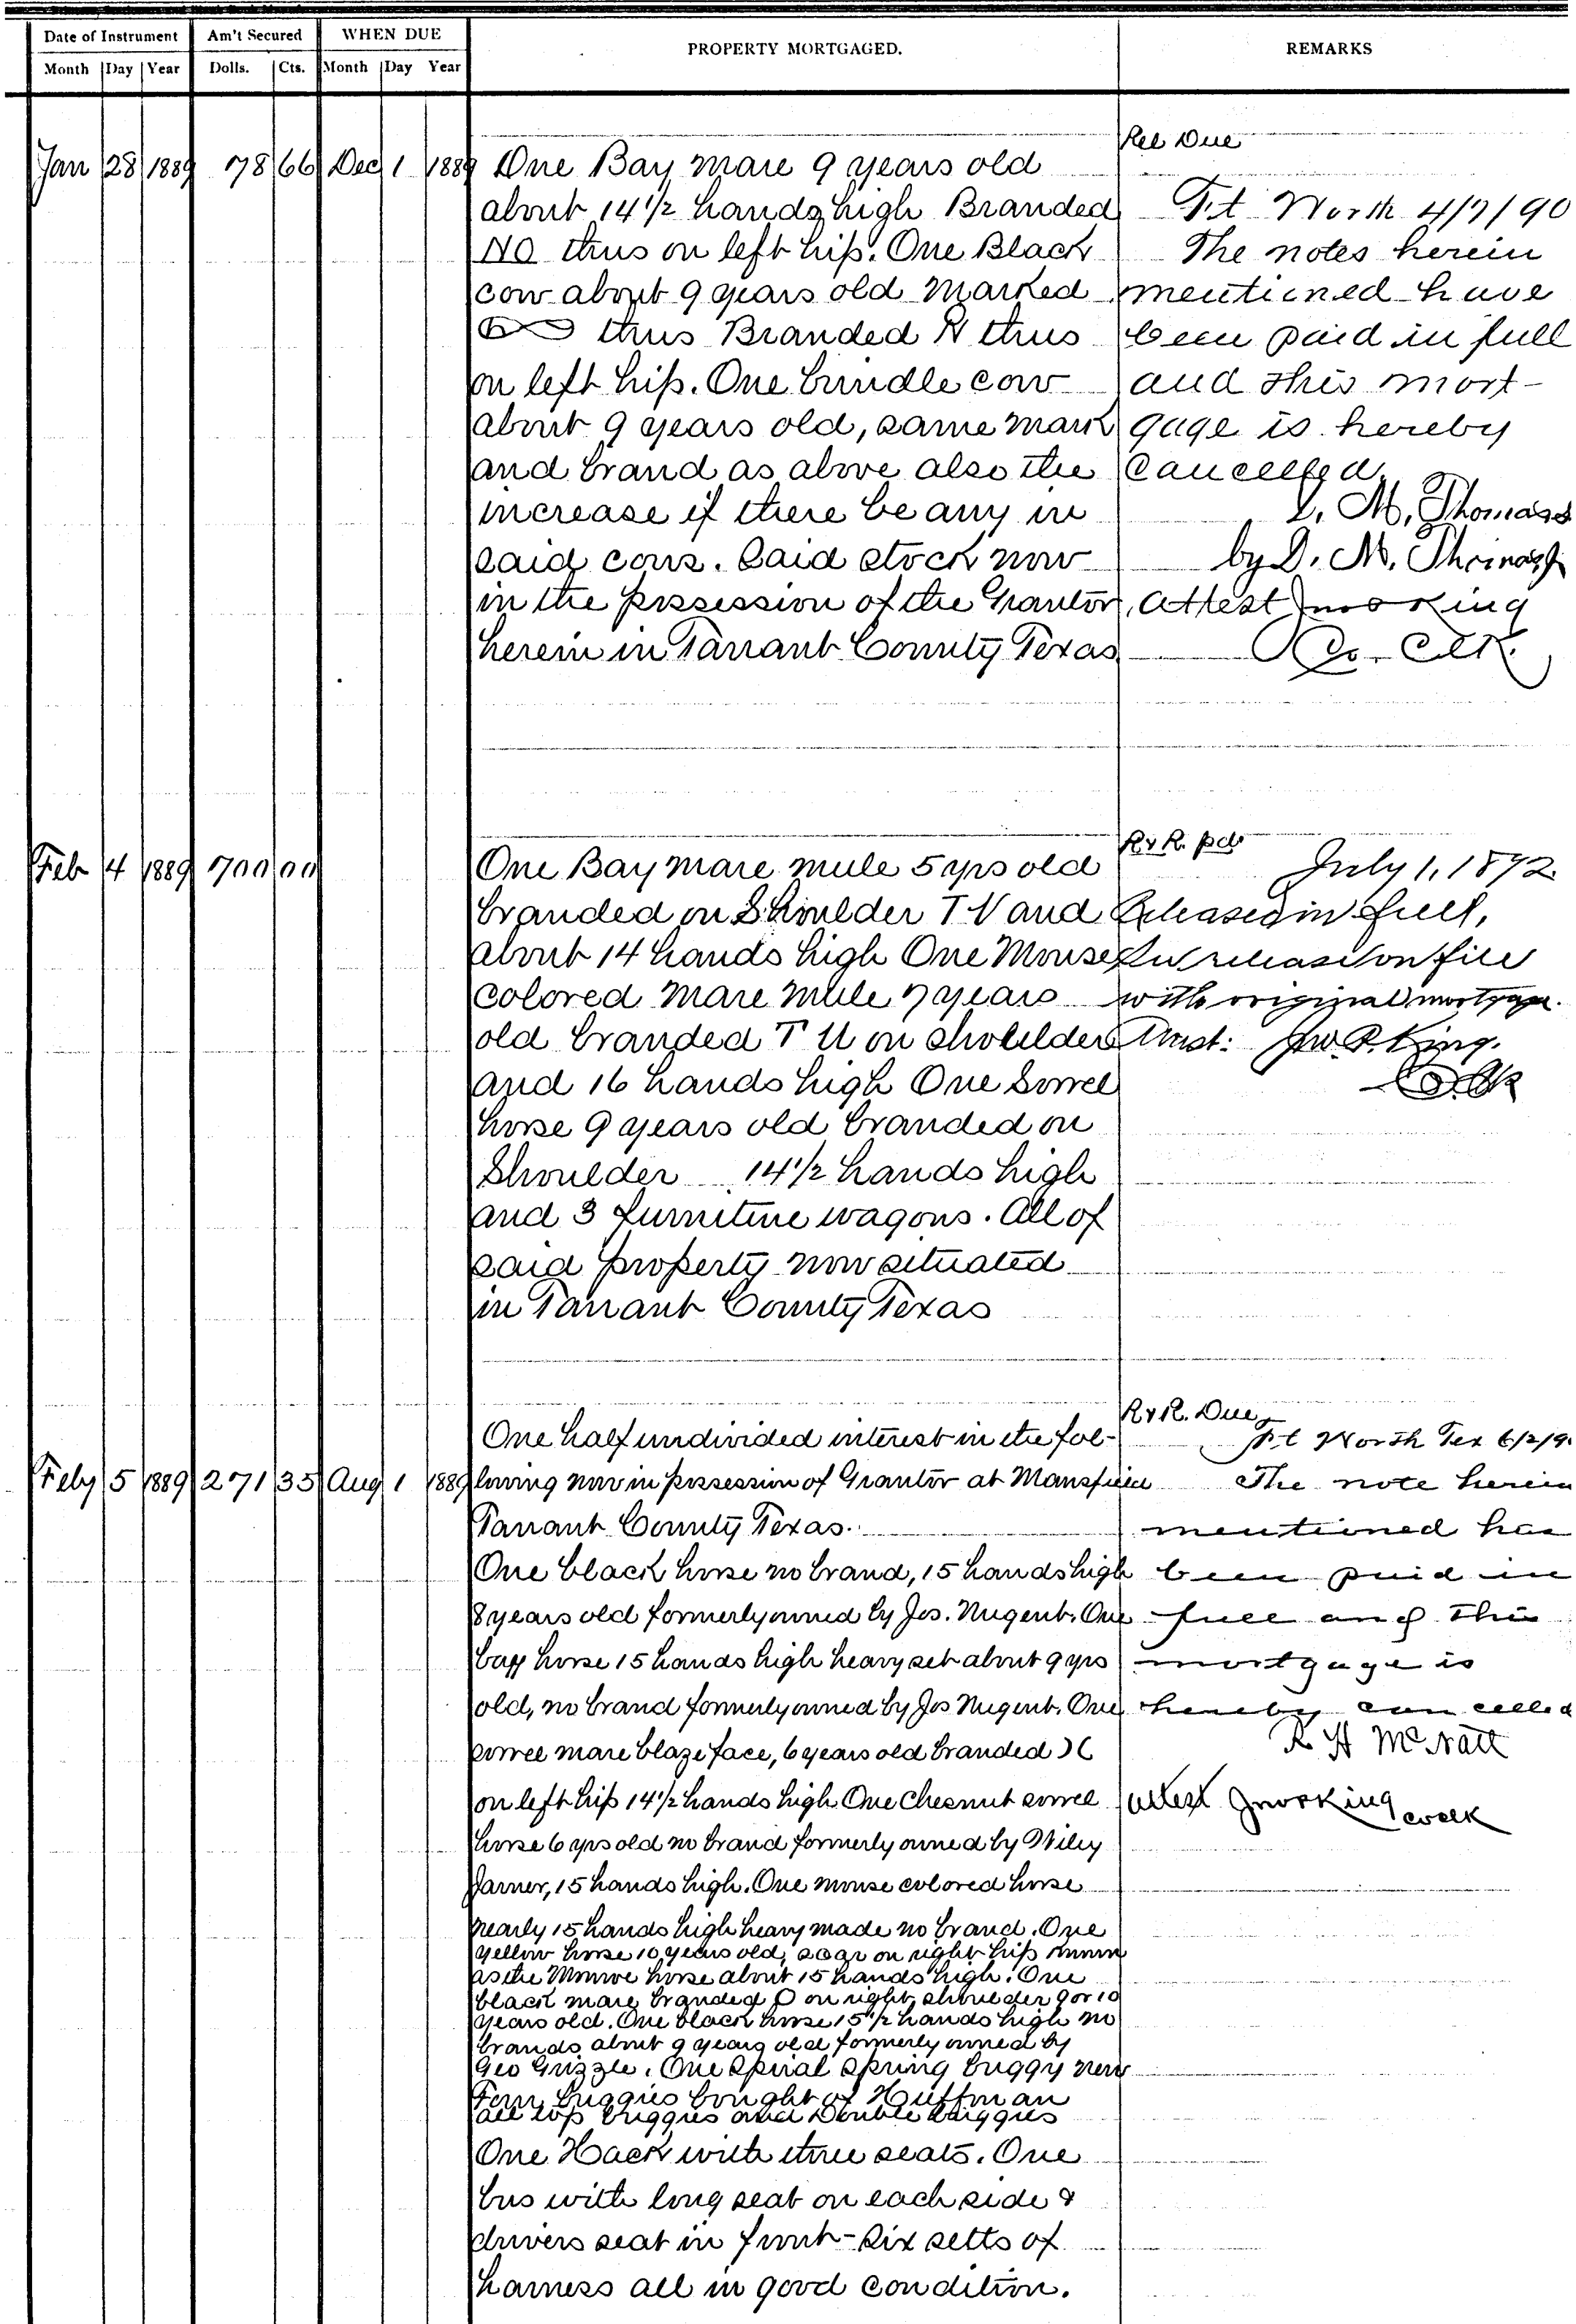 Date of Instrument Am't Secured WHEN DUE PROPERTY MORTGAGED. REMARKS
Month Day Year Dolls. Cts. Month Day Year
Rec Due
Jan 28 1889 78 66 Dec 1 1889 One Bay mare 9 years old
about 14 1/2 hands high Branded
NO thus on left hip. One Black
cow about 9 years old Marked
thus Branded N thus
on left hip. One brindle cow
about 9 years old, same mark
and brand as above also the
increase if there be any in
said cows. Said stock now
in the possession of the Grantor
herein in Tarrant County Texas
Ft Worth 4/7/90
The notes herein
mentioned have
been paid in full
and this mort-
gage is hereby
Cancelled
L. M. Thomas
by D. M. Thomas
Attest Jno P King
Co. Clk.
R & R. pd
Feb 4 1889 700 00 One Bay mare mule 5 yrs old
branded on Shoulder T V and
about 14 hands high One Mouse
colored mare mule 7 years
old branded T U on shoulder
and 16 hands high One Sorrel
horse 9 years old branded on
Shoulder 14 1/2 hands high
and 3 furniture wagons. All of
said property now situated
in Tarrant County Texas
July 1, 1892.
Released in full,
release on file
with original mortgage.
Attest: Jno. P. King.
Co. Clk
R & R. Due
One half undivided interest in the fol-
Feby 5 1889 271 35 Aug 1 1889 lowing now in possession of Grantor at Mansfield
Tarrant County Texas.
One black horse no brand, 15 hands high
8 years old formerly owned by Jos. Nugent. One
bay horse 15 hands high heavy set about 9 yrs
old, no brand formerly owned by Jos Nugent. One
sorrel mare blaze face, 6 years old branded ) (
on left hip 14 1/2 hands high One Chesnut sorrel
horse 6 yrs old no brand formerly owned by Wiley
15 hands high. One mouse colored horse
nearly 15 hands high heavy made no brand. One
yellow horse 10 years old, scar on right hip known
as the Monroe horse about 15 hands high. One
black mare branded O on right shoulder 9 or 10
years old. One black horse 15 1/2 hands high no
brands about 9 years old formerly owned by
Geo Grizzle. One Spiral Spring buggy new
Four buggies bought of Huffman
all top buggies and Double buggies
One Hack with three seats. One
bus with long seat on each side &
drivers seat in front - Six setts of
harness all in good condition.
Ft Worth Tex 6/2/9
The note herein
mentioned has
been paid in
full and this
mortgage is
hereby cancelled
R H McNatt
Attest Jno P King
cclk